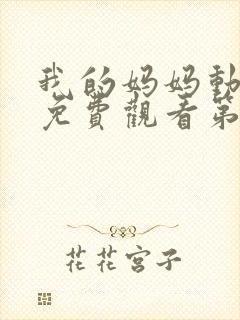 我的妈妈動
免費觀看第
花花宫子